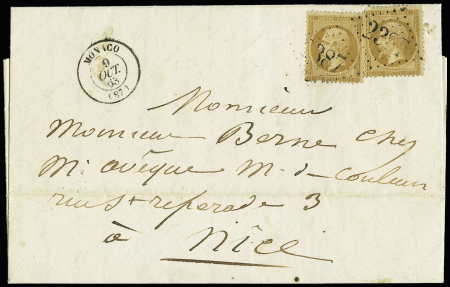 MONACO
9
OCT.
65
(87)
2387
Monsieur
Monsieur Berne chez
Mr avêque M. de Couleurs
rue St reparade 3
à Nice